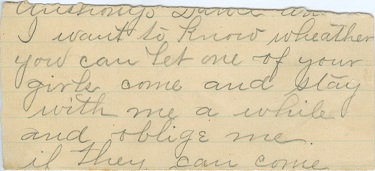 I want to know wheather
you can let one of your
girls come and stay
with me a while
and oblige me.
if they can come